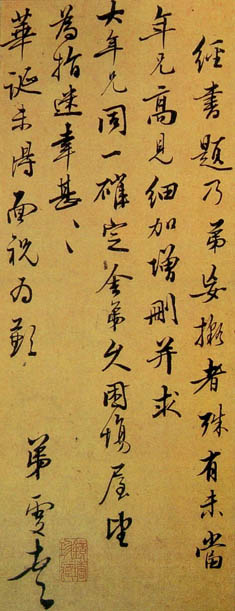 經書題乃弟妄擬者殊有未當
年兄高見細加增刪并求
大年兄同一確定舍弟久困場屋望
為指迷幸甚〻
華誕未得面祝为歉
弟